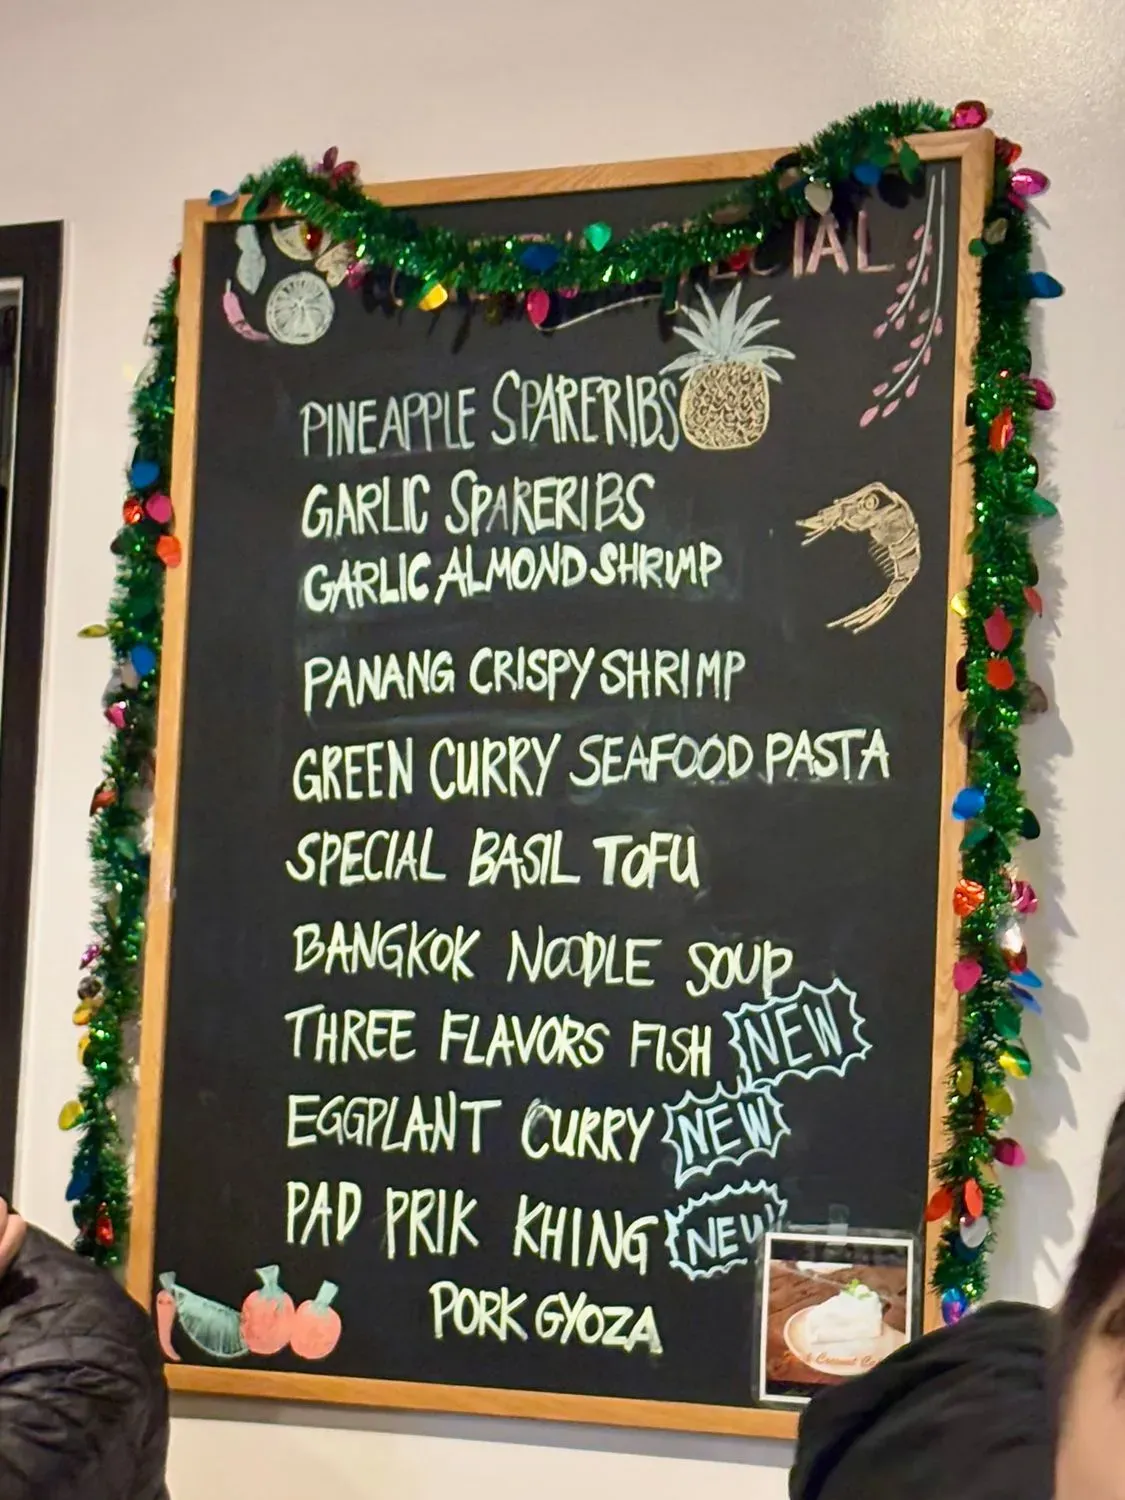 PINEAPPLE SPARERIBS
GARLIC SPARERIBS
GARLIC ALMOND SHRIMP
PANANG CRISPY SHRIMP
GREEN CURRY SEAFOOD PASTA
SPECIAL BASIL TOFU
BANGKOK NOODLE SOUP
THREE FLAVORS FISH NEW
EGGPLANT CURRY NEW
PAD PRIK KHING NEW
PORK GYOZA
Coconut